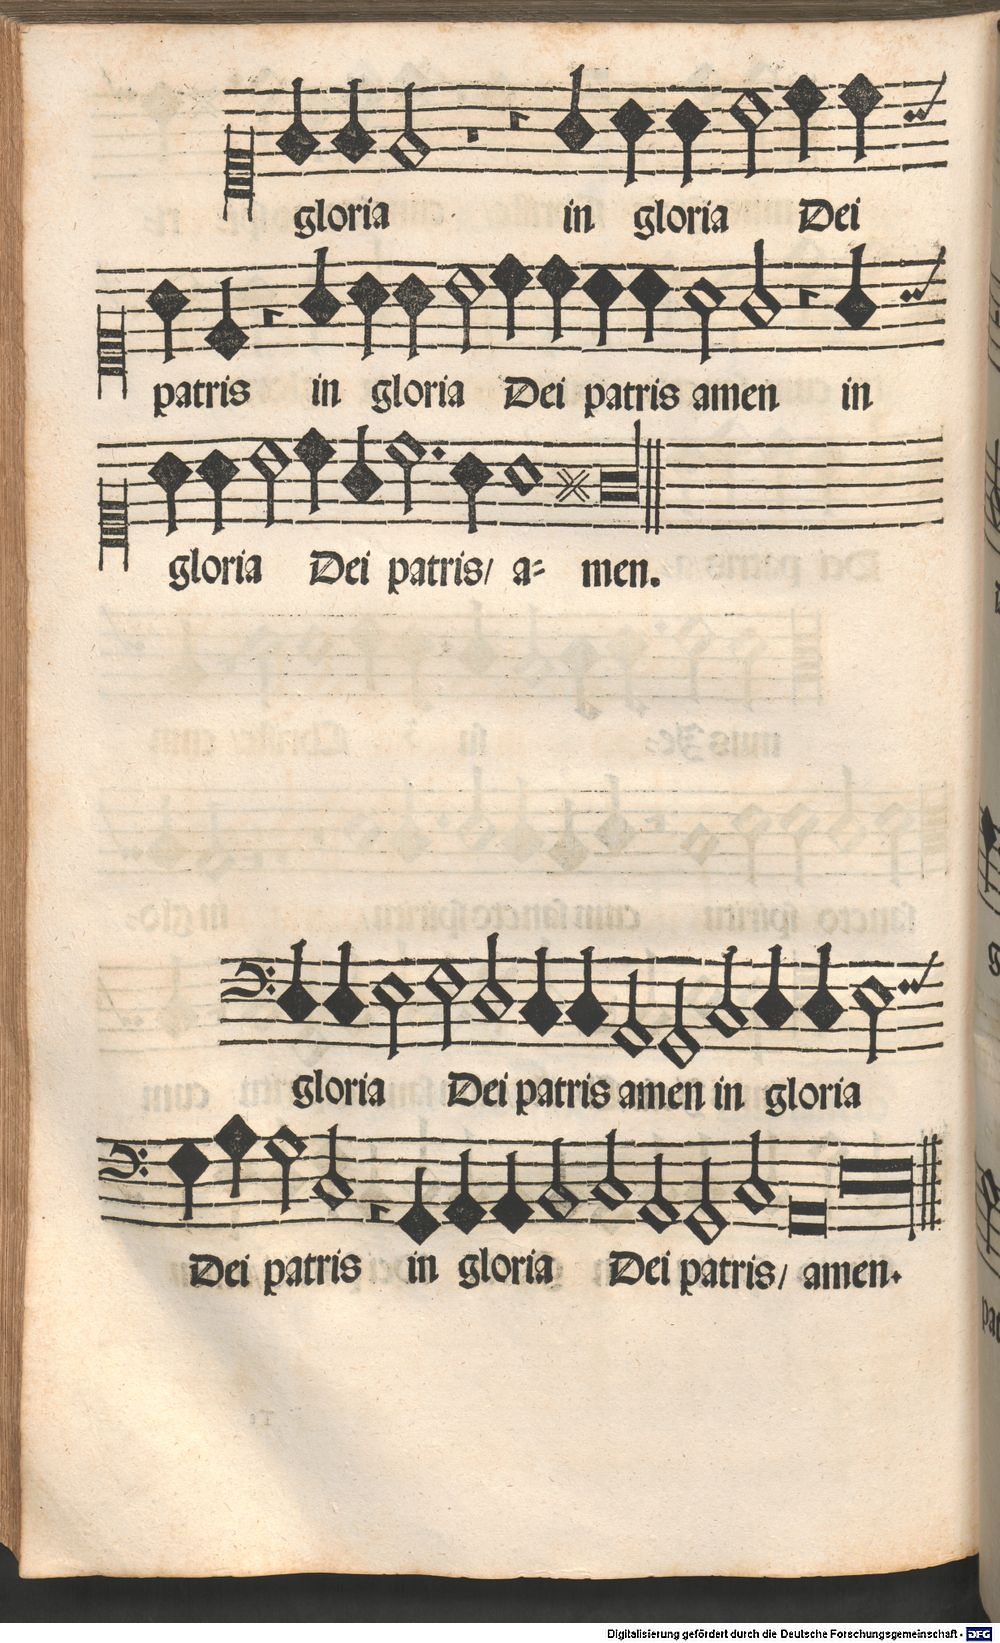 gloria in gloria Dei
patris in gloria Dei patris amen in
gloria Dei patris/ a= men.
gloria Dei patris amen in gloria
Dei patris in gloria Dei patris/ amen.
Digitalisierung gefördert durch die Deutsche Forschungsgemeinschaft - DFG